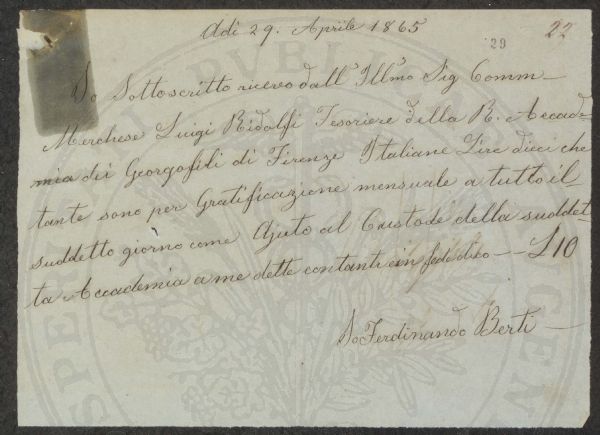 Adì 29. Aprile 1865
29
22
Io Sottoscritto ricevo dall' Illmo Sig Comm
Marchese Luigi Ridolfi Tesoriere della R. Accade
mia dei Georgofili di Firenze Italiane Lire dieci che
tante sono per Gratificazione mensuale a tutto il
suddetto giorno come Ajuto al Custode della suddet
ta Accademia a me dette contanti in fede dico — £10
Io Ferdinando Berti